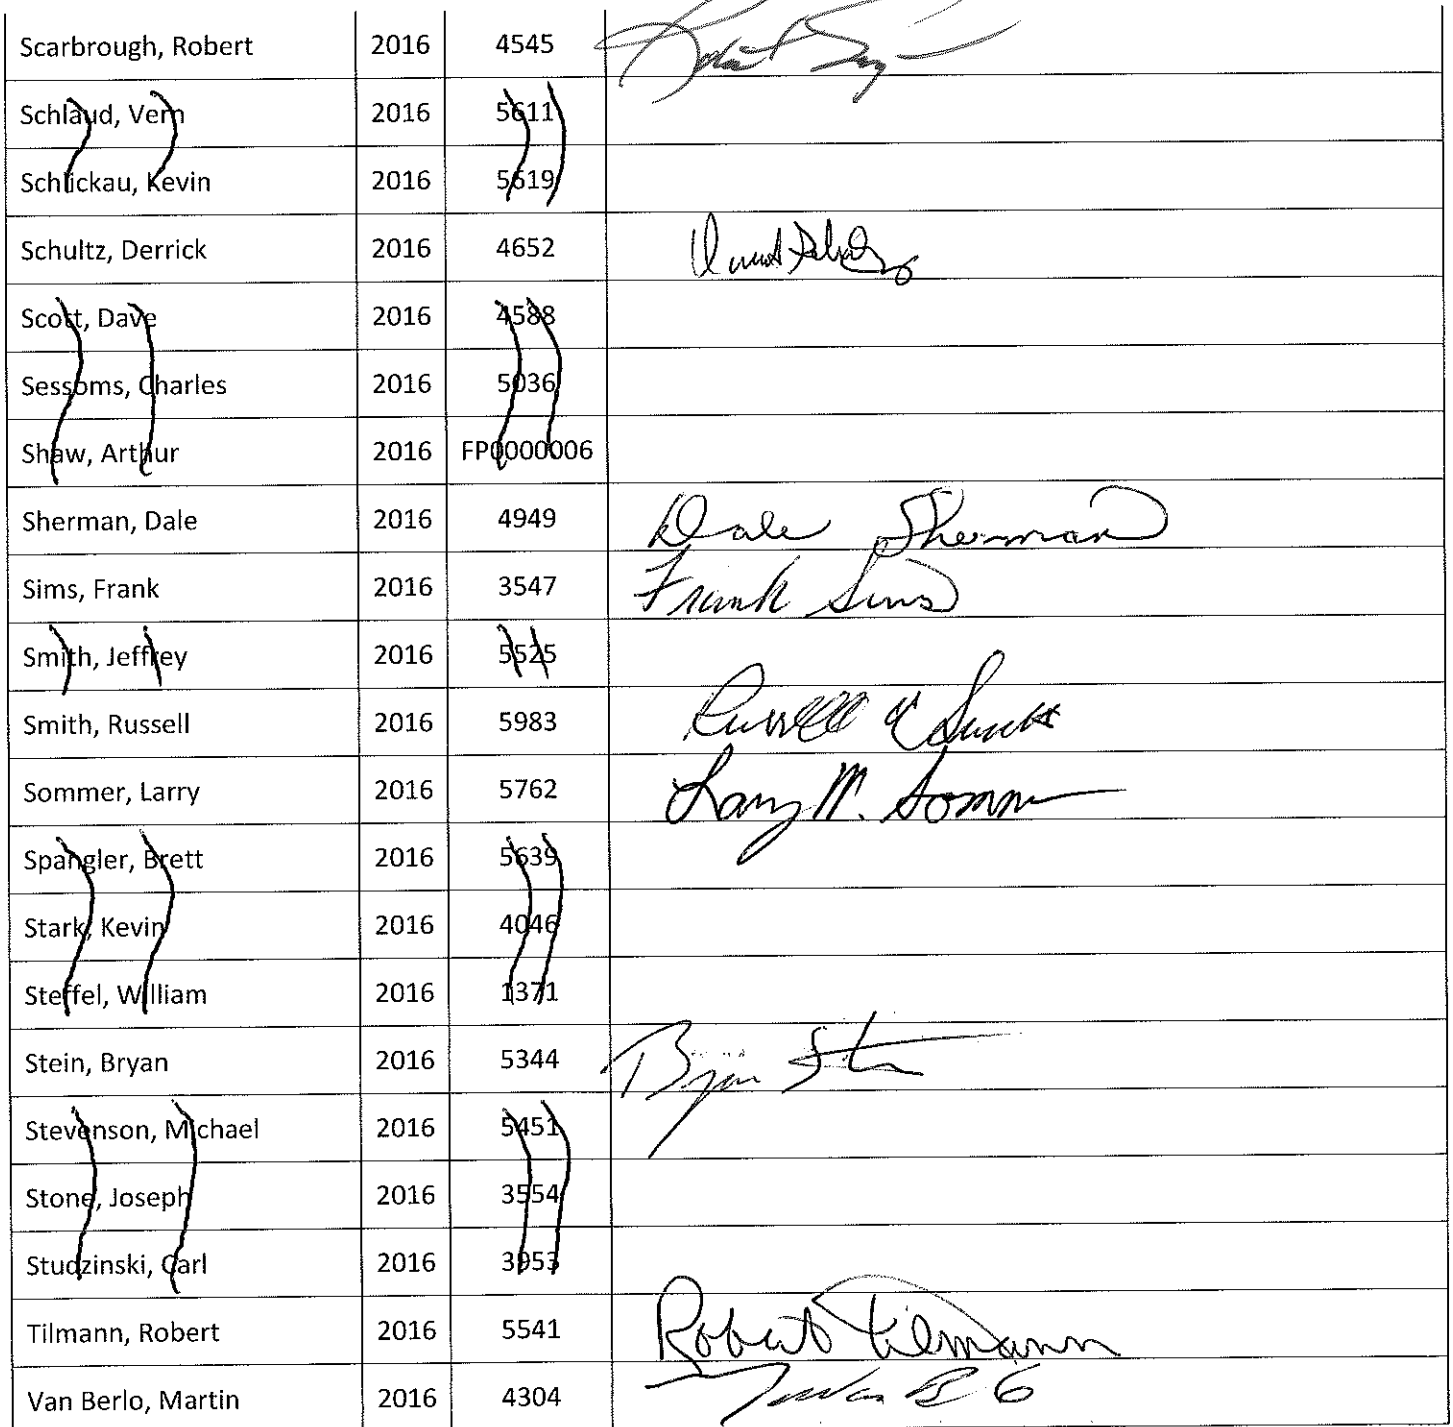 Scarbrough, Robert 2016 4545
Schlaud, Vern 2016 5611
Schlickau, Kevin 2016 5619
Schultz, Derrick 2016 4652
Scott, Dave 2016 4588
Sessoms, Charles 2016 5036
Shaw, Arthur 2016 FP0000006
Sherman, Dale 2016 4949 Dale Sherman
Sims, Frank 2016 3547 Frank Sims
Smith, Jeffrey 2016 5525
Smith, Russell 2016 5983 Russell Smith
Sommer, Larry 2016 5762 Larry M. Sommer
Spangler, Brett 2016 5639
Stark, Kevin 2016 4046
Steffel, William 2016 1371
Stein, Bryan 2016 5344 Bryan
Stevenson, Michael 2016 5451
Stone, Joseph 2016 3554
Studzinski, Carl 2016 3953
Tilmann, Robert 2016 5541 Robert Tilmann
Van Berlo, Martin 2016 4304